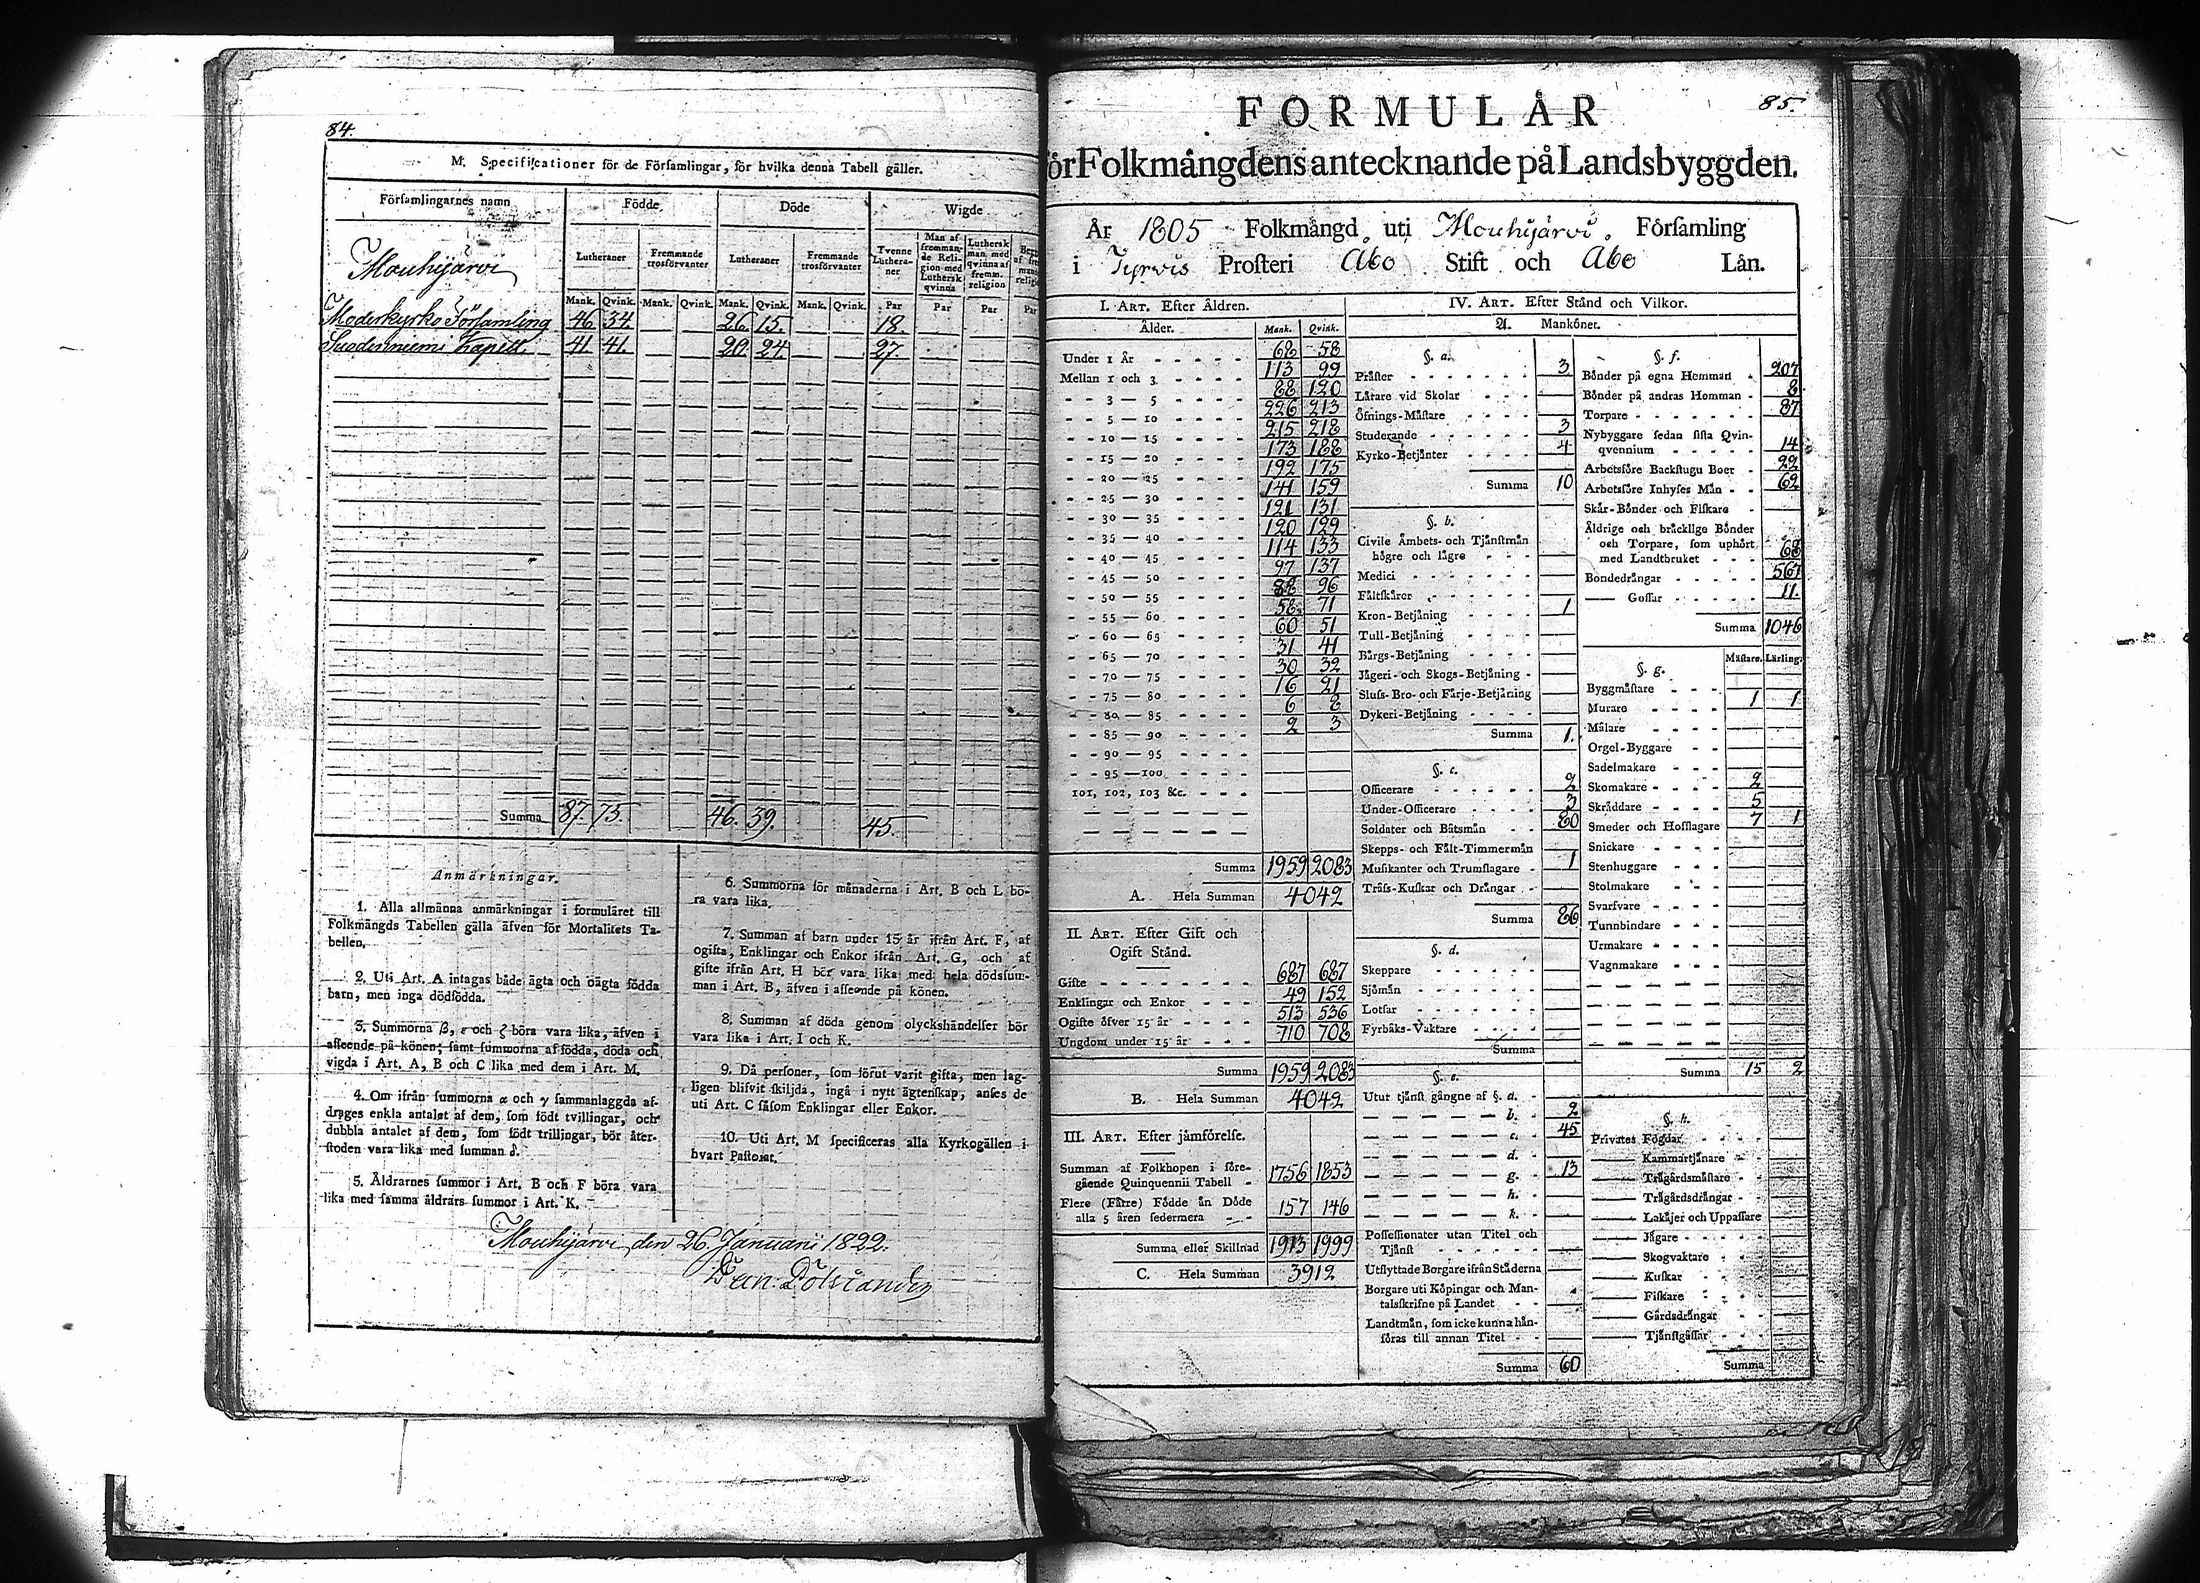 84.
M. Specificationer för de Församlingar, för hvilka denna Tabell gäller.
Församlingarnes namn
Födde
Döde
Wigde
Lutheraner
Fremmande trosförvanter
Lutheraner
Fremmande trosförvanter
Tvenne Lutheraner
Man af fremmande Religion med Luthersk qvinna
Luthersk man med qvinna af fremm. religion
Mank. Qvink. Mank. Qvink. Mank. Qvink. Mank. Qvink. Par Par Par Par
Mouhijärvi
Moderkyrko Församling 46 34. 26. 15. 18.
Suodenniemi Kapell. 41. 41. 20. 24. 27.
Summa 87. 75. 46. 39. 45.
Anmärkningar.
1. Alla allmänna anmärkningar i formuläret till
Folkmängds Tabellen gälla äfven för Mortalitets Ta-
bellen.
2. Uti Art. A intagas både ägta och oägta födda
barn, men inga dödfödda.
3. Summorna β, ε och ζ böra vara lika, äfven i
afseende på könen; samt summorna af födda, döda och
vigda i Art. A, B och C lika med dem i Art. M.
4. Om ifrån summorna α och γ sammanlaggda af-
drages enkla antalet af dem, som födt tvillingar, och
dubbla antalet af dem, som födt trillingar, bör åter-
stoden vara lika med summan δ.
5. Åldrarnes summor i Art. B och F böra vara
lika med samma åldrars summor i Art. K.
6. Summorna för månaderna i Art. B och L bö-
ra vara lika.
7. Summan af barn under 15 år ifrån Art. F, af
ogifta, Enklingar och Enkor ifrån Art. G, och af
gifte ifrån Art. H bör vara lika med hela dödssum-
man i Art. B, äfven i afseende på könen.
8. Summan af döda genom olyckshändelser bör
vara lika i Art. I och K.
9. Då personer, som förut varit gifta, men lag-
ligen blifvit skiljda, ingå i nytt ägtenskap, anses de
uti Art. C såsom Enklingar eller Enkor.
10. Uti Art. M specificeras alla Kyrkogällen i
hvart Pastorat.
Mouhijärvi den 26 Januarii 1822.
85.
FORMULÄR
för Folkmängdens antecknande på Landsbyggden.
År 1805 Folkmängd uti Mouhijärvi. Församling
i Tyrvis Prosteri Åbo Stift och Åbo Län.
I. ART. Efter Åldren.
Ålder. Mank. Qvink.
Under 1 År 68 58
Mellan 1 och 3 113 99
3 — 5 88 120
5 — 10 226 213
10 — 15 215 218
15 — 20 173 188
20 — 25 192 175
25 — 30 141 159
30 — 35 121 131
35 — 40 120 129
40 — 45 114 133
45 — 50 97 137
50 — 55 88 96
55 — 60 58 71
60 — 65 60 51
65 — 70 31 41
70 — 75 30 32
75 — 80 16 21
80 — 85 6 8
85 — 90 2 3
90 — 95
95 — 100
101, 102, 103 &c.
Summa 1959 2083
A. Hela Summan 4042
II. ART. Efter Gift och
Ogift Stånd.
Gifte 687 687
Enklingar och Enkor 49 152
Ogifte öfver 15 år 513 536
Ungdom under 15 år 710 708
Summa 1959 2083
B. Hela Summan 4042
III. ART. Efter jämförelse.
Summan af Folkhopen i före-
gående Quinquennii Tabell 1756 1853
Flere (Färre) Födde än Döde
alla 5 åren sedermera 157 146
Summa eller Skillnad 1913 1999
C. Hela Summan 3912
IV. ART. Efter Stånd och Vilkor.
A. Mankönet.
§. a.
Präster 3
Lärare vid Skolar
Öfnings-Mästare
Studerande 3
Kyrko-Betjänter 4
Summa 10
§. b.
Civile Ämbets- och Tjänstmän
högre och lägre
Medici
Fältskärer
Kron-Betjäning 1
Tull-Betjäning
Bärgs-Betjäning
Jägeri- och Skogs-Betjäning
Sluss- Bro- och Färje-Betjäning
Dykeri-Betjäning
Summa 1.
§. c.
Officerare 2
Under-Officerare 3
Soldater och Båtsmän 80
Skepps- och Fält-Timmermän
Musikanter och Trumslagare 1
Träss-Kuskar och Drängar
Summa 86
§. d.
Skeppare
Sjömän
Lotsar
Fyrbåks-Vaktare
Summa
§. e.
Utur tjänst gångne af §. a.
b. 2
c. 45
d.
g. 13
h.
k.
Possessionater utan Titel och
Tjänst
Utflyttade Borgare ifrån Städerna
Borgare uti Köpingar och Man-
talsskrifne på Landet
Landtmän, som icke kunna hän-
föras till annan Titel
Summa 60
§. f.
Bönder på egna Hemman 207
Bönder på andras Hemman 8
Torpare 87
Nybyggare sedan sista Qvin-
qvennium 14
Arbetsföre Backstugu Boer 22
Arbetsföre Inhyses Män 62
Skär-Bönder och Fiskare
Äldrige och bräcklige Bönder
och Torpare, som uphört
med Landtbruket 68
Bondedrängar 567
Gossar 11.
Summa 1046
§. g. Mästare. Lärling.
Byggmästare 1 1
Murare
Målare
Orgel-Byggare
Sadelmakare
Skomakare 2
Skräddare 5
Smeder och Hofslagare 7 1
Snickare
Stenhuggare
Stolmakare
Svarfvare
Tunnbindare
Urmakare
Vagnmakare
Summa 15 2
§. h.
Privates Fogdar
Kammartjänare
Trägårdsmästare
Trägårdsdrängar
Lakäjer och Uppassare
Jägare
Skogvaktare
Kuskar
Fiskare
Gårdsdrängar
Tjänstgåssar
Summa